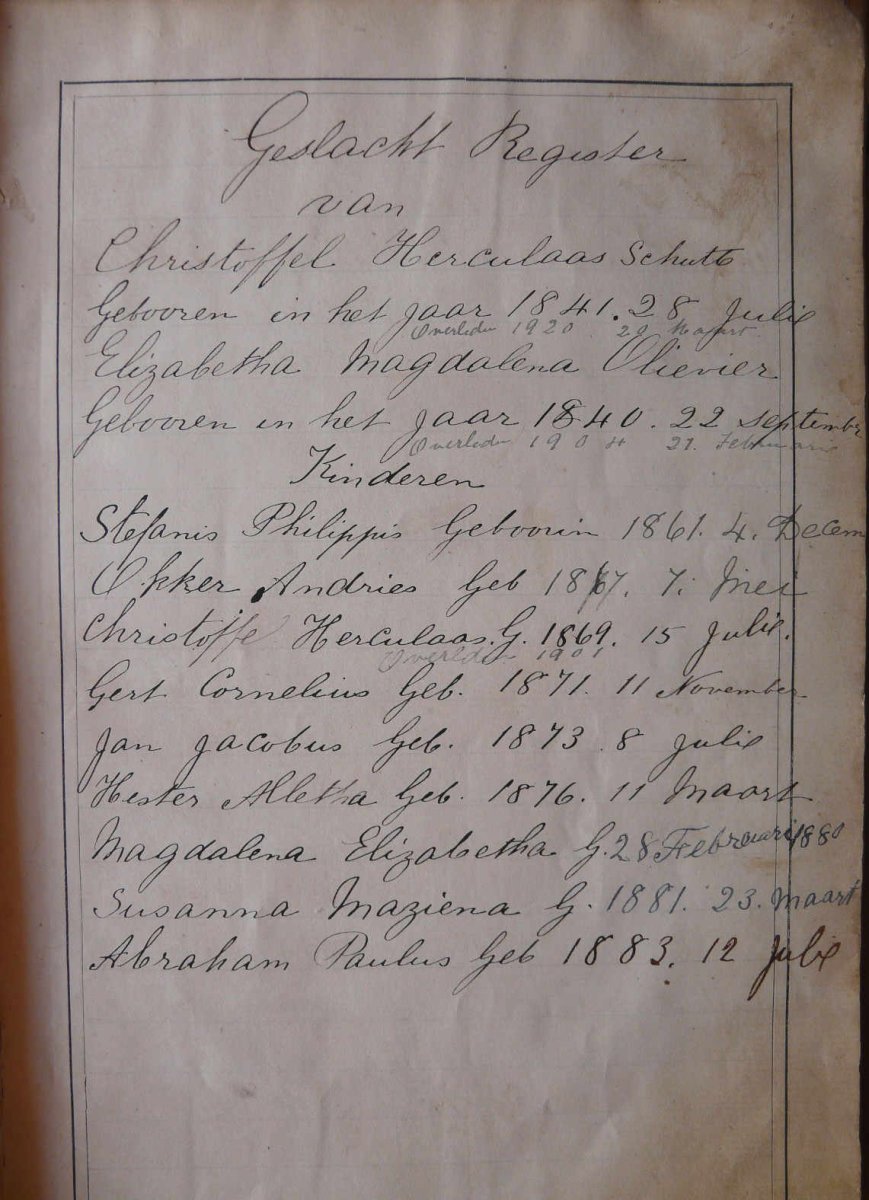 Geslacht Register
van
Christoffel Herculaas Schutte
Gebooren in het jaar 1841. 28 Julie
Overleden 1920 29 Maart
Elizabetha Magdalena Olievier
Gebooren in het jaar 1840. 22 September
Overleden 1904 21. Februarie
Kinderen
Stefanis Philippis Geboorin 1861. 4. Decem
Okker Andries Geb 1867. 7. Mei
Christoffel Herculaas. G. 1869. 15 Julie.
Overleden 1901
Gert Cornelius Geb. 1871. 11 November
Jan Jacobus Geb. 1873. 8 Julie
Hester Alletha Geb. 1876. 11 Maart
Magdalena Elizabetha G. 28 Februarie 1880
Susanna Maziena G. 1881. 23. Maart
Abraham Paulus Geb 1883. 12 Julie